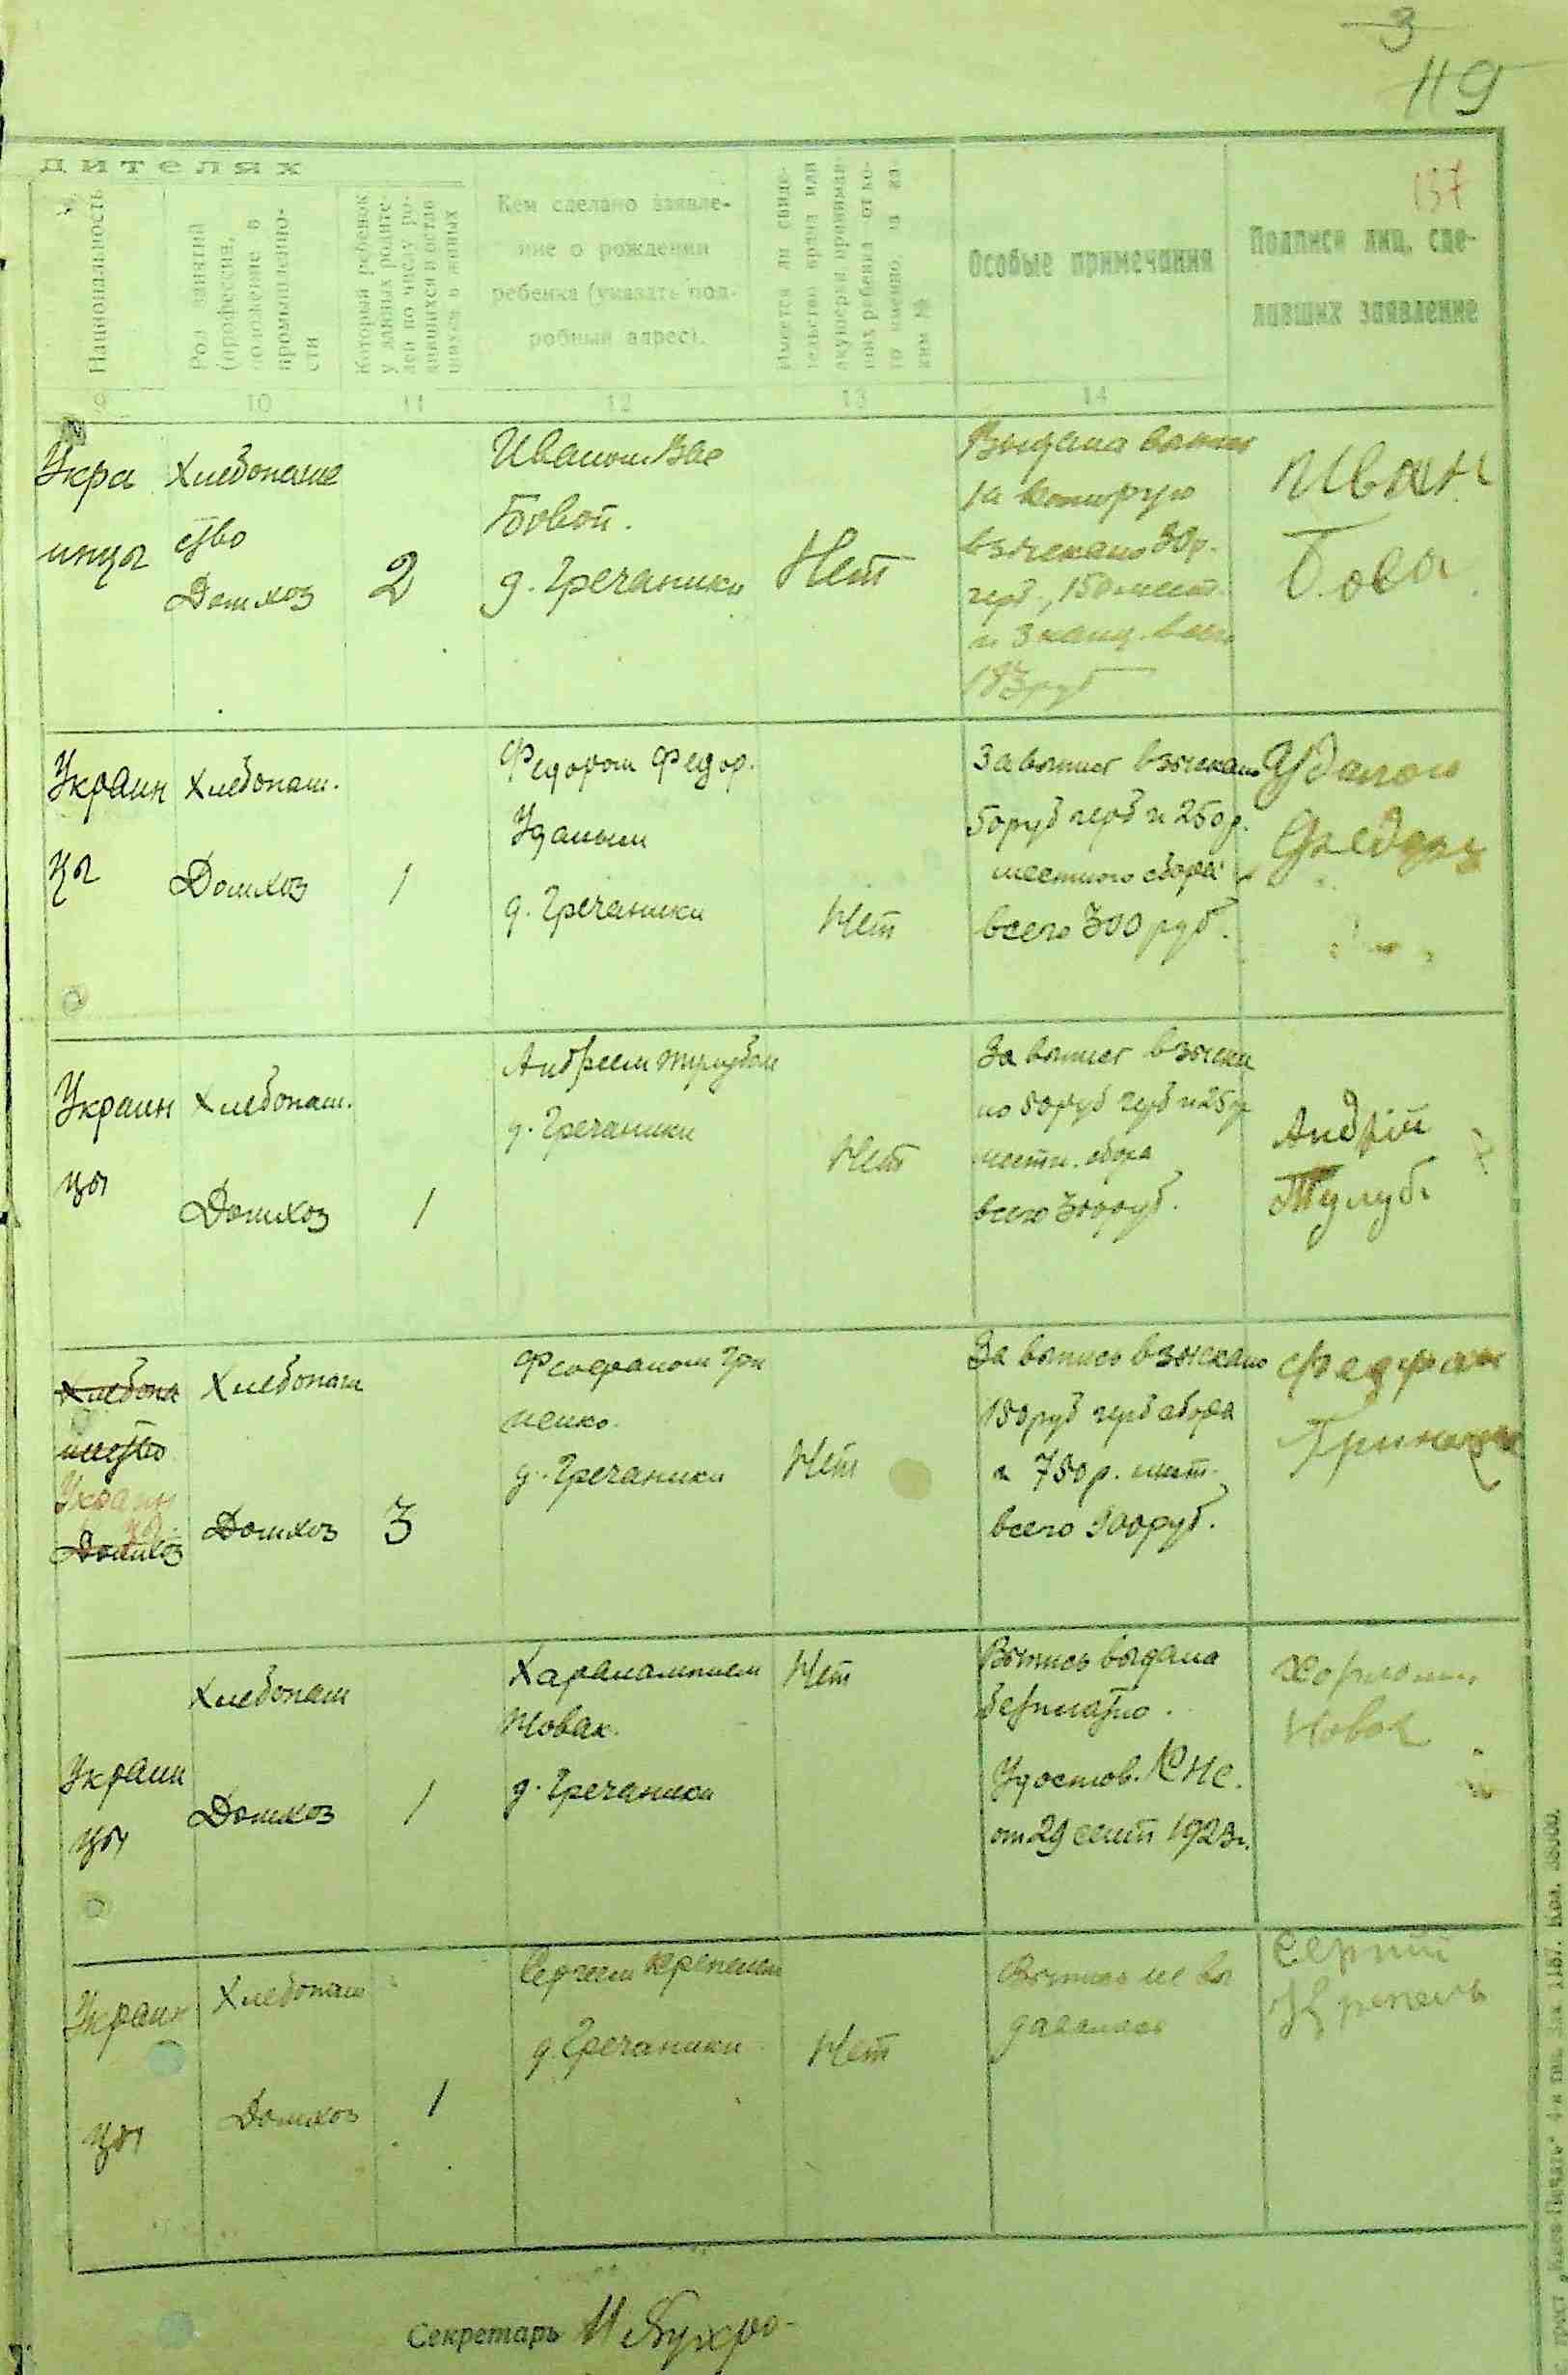 3
119
137
дителях
Национальность
Род занятий
(профессия,
положение в
промышленно-
сти
Который ребенок
у данных родите-
лей по числу ро-
дившихся и остав
шихся в живых
Кем сделано заявле-
ние о рождении
ребенка (указать под-
робный адрес).
Имеется ли свиде-
тельство врача или
акушерки принимав-
ших ребенка от ко-
го именно, и за
ким №
Особые примечания
Подписи лиц, сде-
лавших заявление
9 10 11 12 13 14
Укра
инцы
Хлебопаше
ство
Домхоз
2
Иваном Вас
Бовой.
д. Гречаники
Нет
Выдана
за которую
взыскано 30 р.
герб., 150 мест.
и 3 канц. всего
183 руб
Иван
Бова
Украин
цы
Хлебопаш.
Домхоз
1
Федором Федор.
Удалым
д. Гречаники
Нет
За выпис взыскано
50 руб герб и 250 р.
местного сбора
всего 300 руб.
Федор
Украин
цы
Хлебопаш.
Домхоз
1
Андреем Тулубом
д. Гречаники
Нет
За выпис взыска
но 50 руб герб и 250
местн. сбора
всего 300 руб.
Андрій
Тулуб.
Хлебопа
шество
Украин
цы.
Домхоз
Хлебопаш
Домхоз
3
Феофаном Гри
ненко.
д. Гречаники
Нет
За выпись взыскано
150 руб герб сбора
и 750 р. мест.
всего 900 руб.
Украин
цы
Хлебопаш
Домхоз
1
Харалампием
Новак.
д. Гречаники
Нет
Выпись выдана
бесплатно.
Удостов. КНС.
от 29 сент 1923 г.
Новак
Украин
цы
Хлебопаш
Домхоз
1
Сергеем Крепелем
д. Гречаники
Нет
Выпись не вы
давалась
Сергій
Крепель
Секретарь